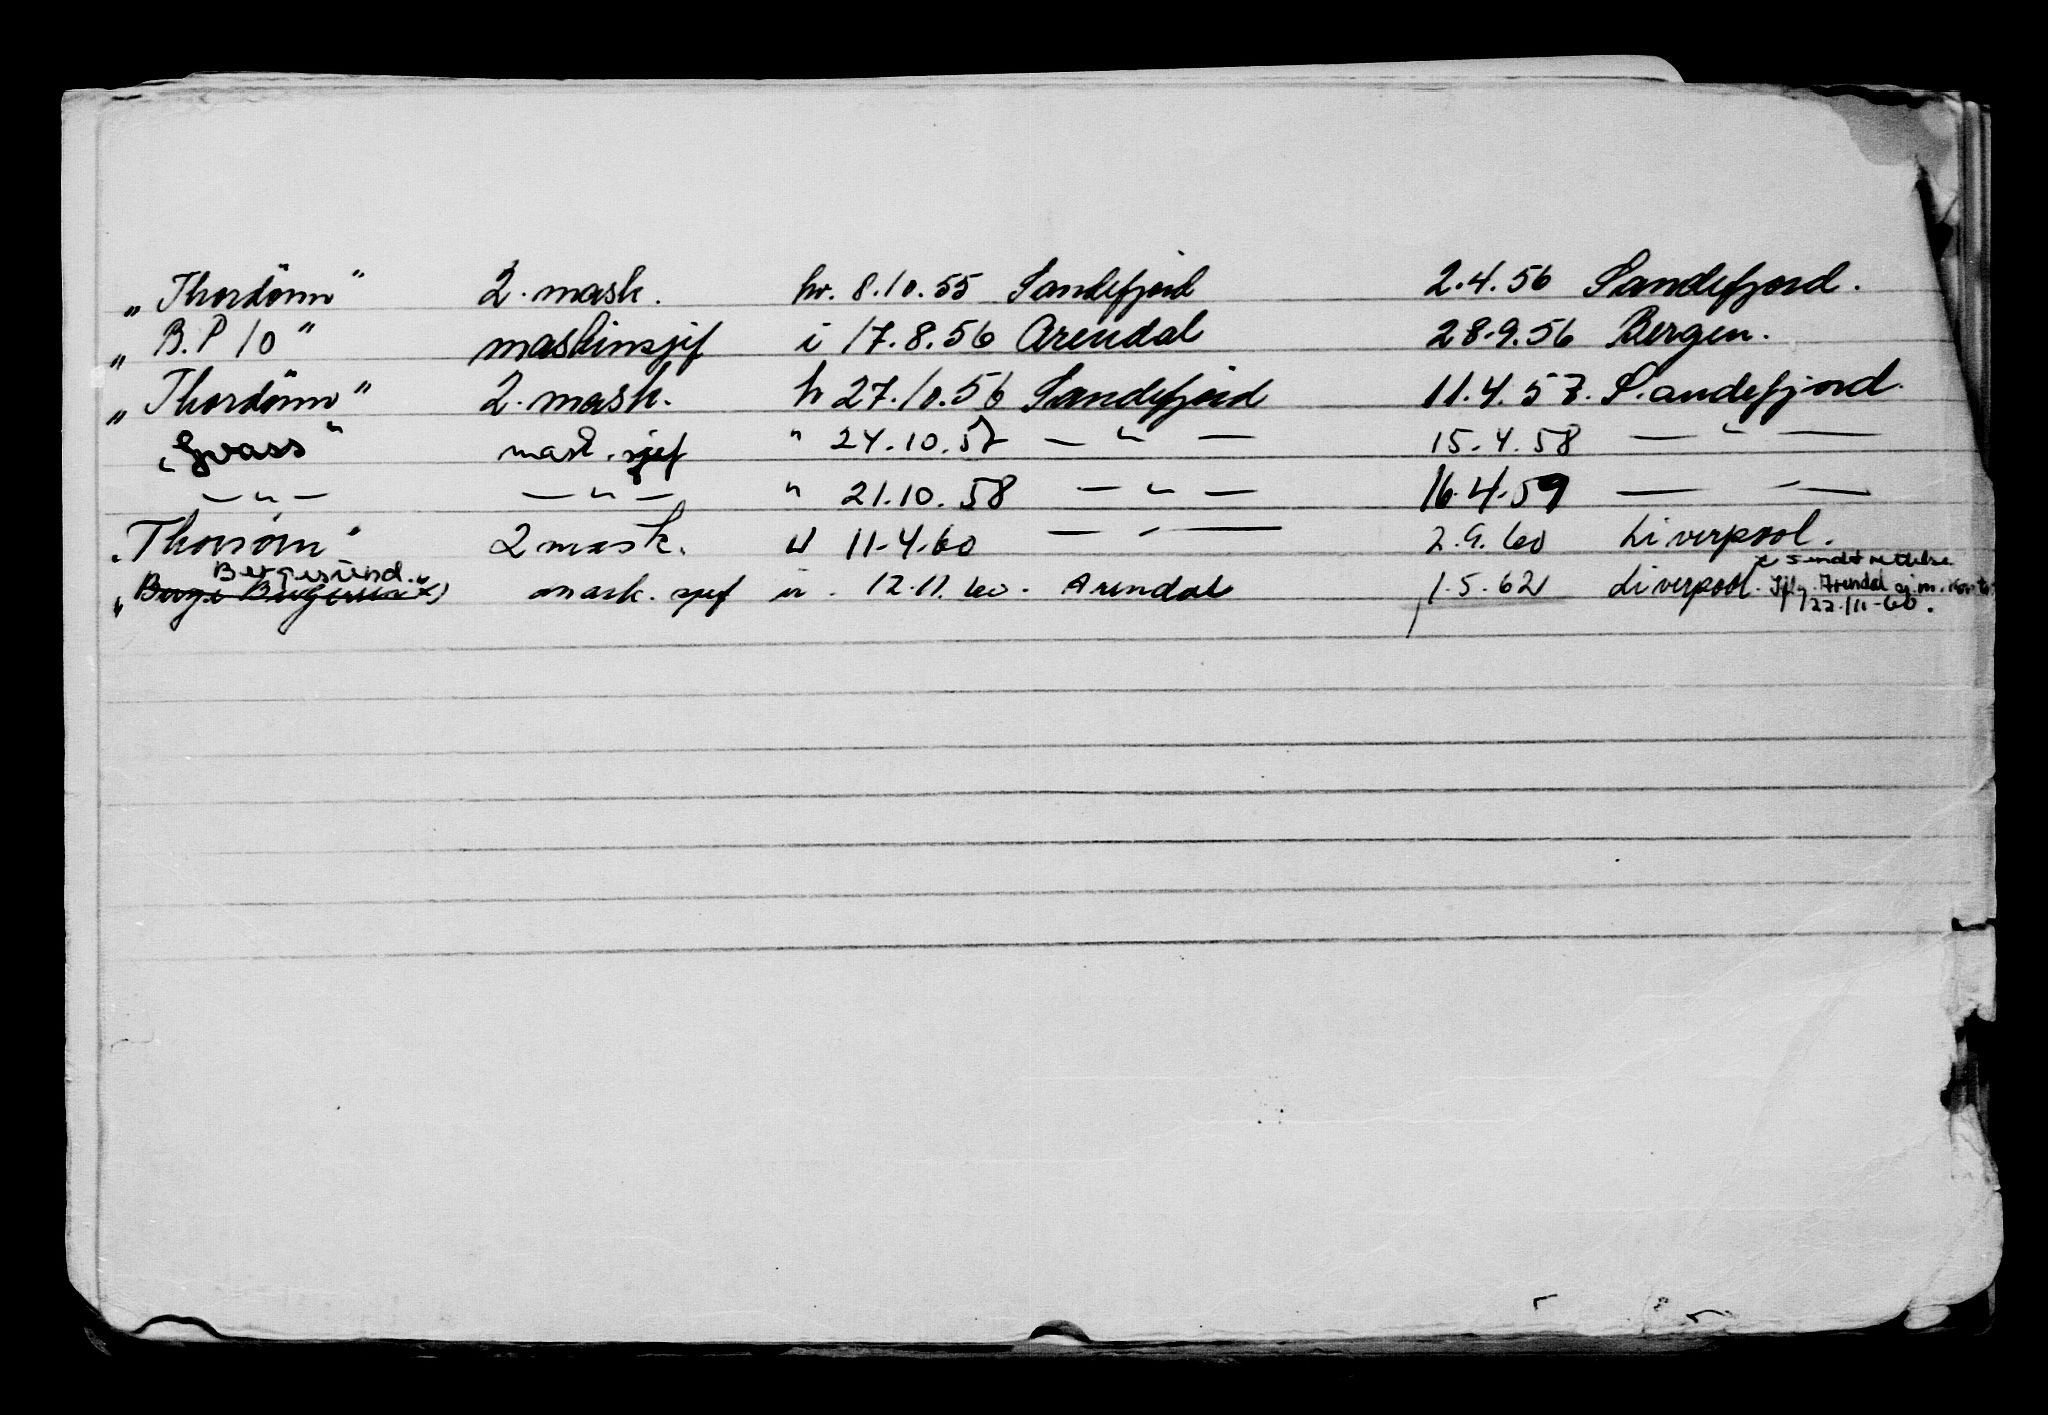 „Thordönn" 2. mask. hv. 8.10.55 Sandefjord 2.4.56 Sandefjord.
„B.P 10" maskinsjef i 17.8.56 Arendal 28.9.56 Bergen.
„Thordönn" 2. mask. h 27.10.56 Sandefjord 11.4.57. Sandefjord.
„Gvass" mask. sjef " 24.10.57 — " — 15.4.58 — " —
— " — — " — " 21.10.58 — " — 16.4.59 — " —
„Thorsørn" 2 mask. u 11.4.60 — " — 2.9.60 Liverpool.
Bergesund." x sendt rettelse
„Berge Bergesen x) mask. sjef u. 12.11.60. Arendal 1.5.62 Liverpool. Iflg. Arendal sj.m.kontor
22/11-60.